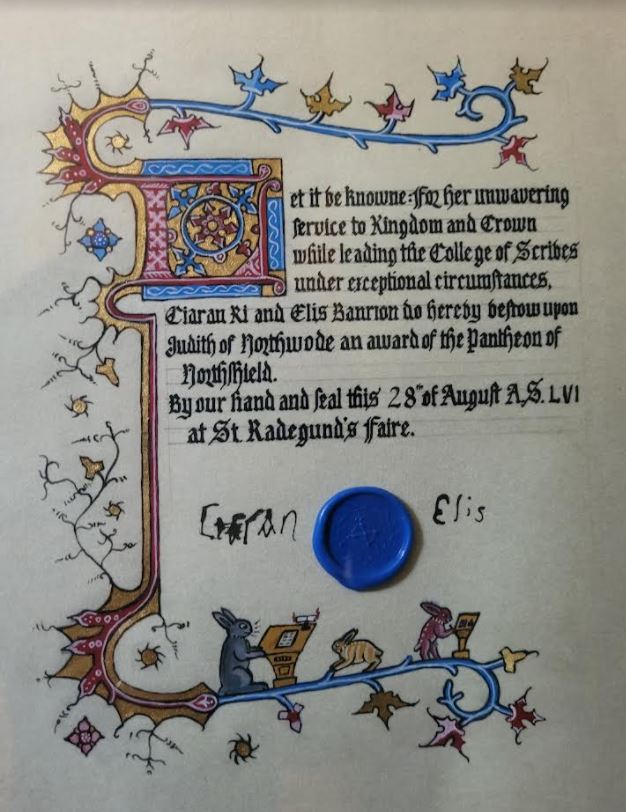 Let it be knowne: for her unwavering
service to Kingdom and Crown
while leading the College of Scribes
under exceptional circumstances,
Ciaran Ri and Elis Banrion do hereby bestow upon
Judith of Northwode an award of the Pantheon of
Northshield.
By our hand and seal this 28th of August A.S. LVI
at St. Radegund's Faire.
Ciaran Elis